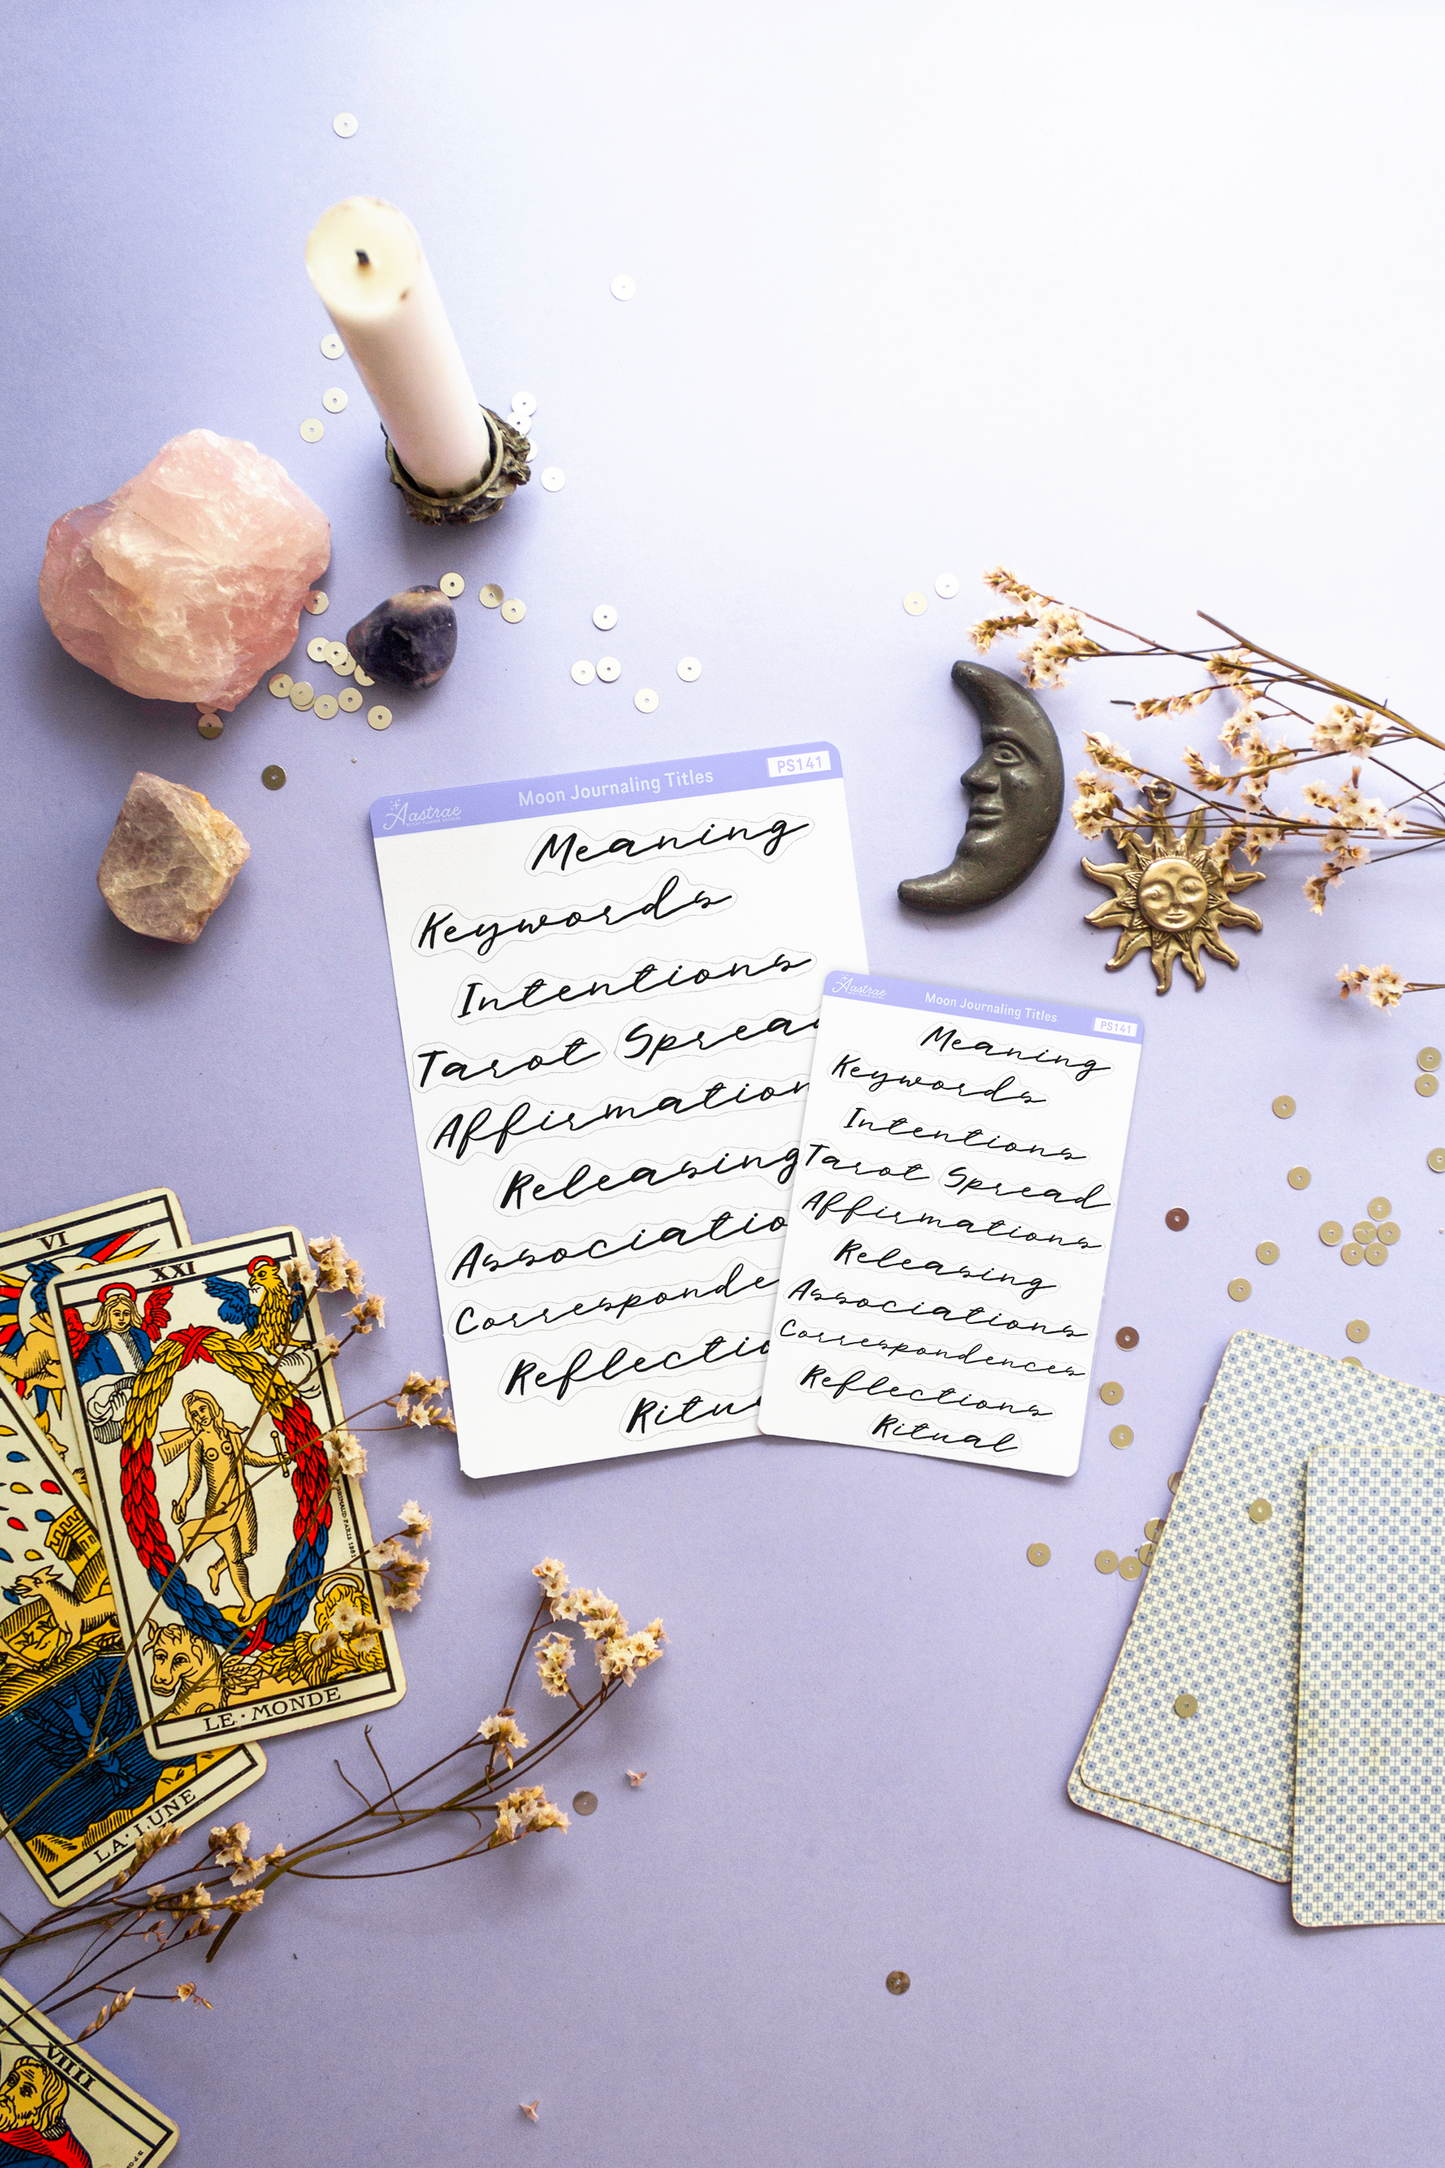 Aastrae
Moon Journaling Titles
PS141
Meaning
Keywords
Intentions
Tarot Spread
Affirmation
Releasing
Associatio
Corresponde
Reflectio
Ritu
Aastrae
Moon Journaling Titles
PS141
Meaning
Keywords
Intentions
Tarot Spread
Affirmations
Releasing
Associations
Correspondences
Reflections
Ritual
VI
XXI
LE·MONDE
LA·LUNE
VIIII